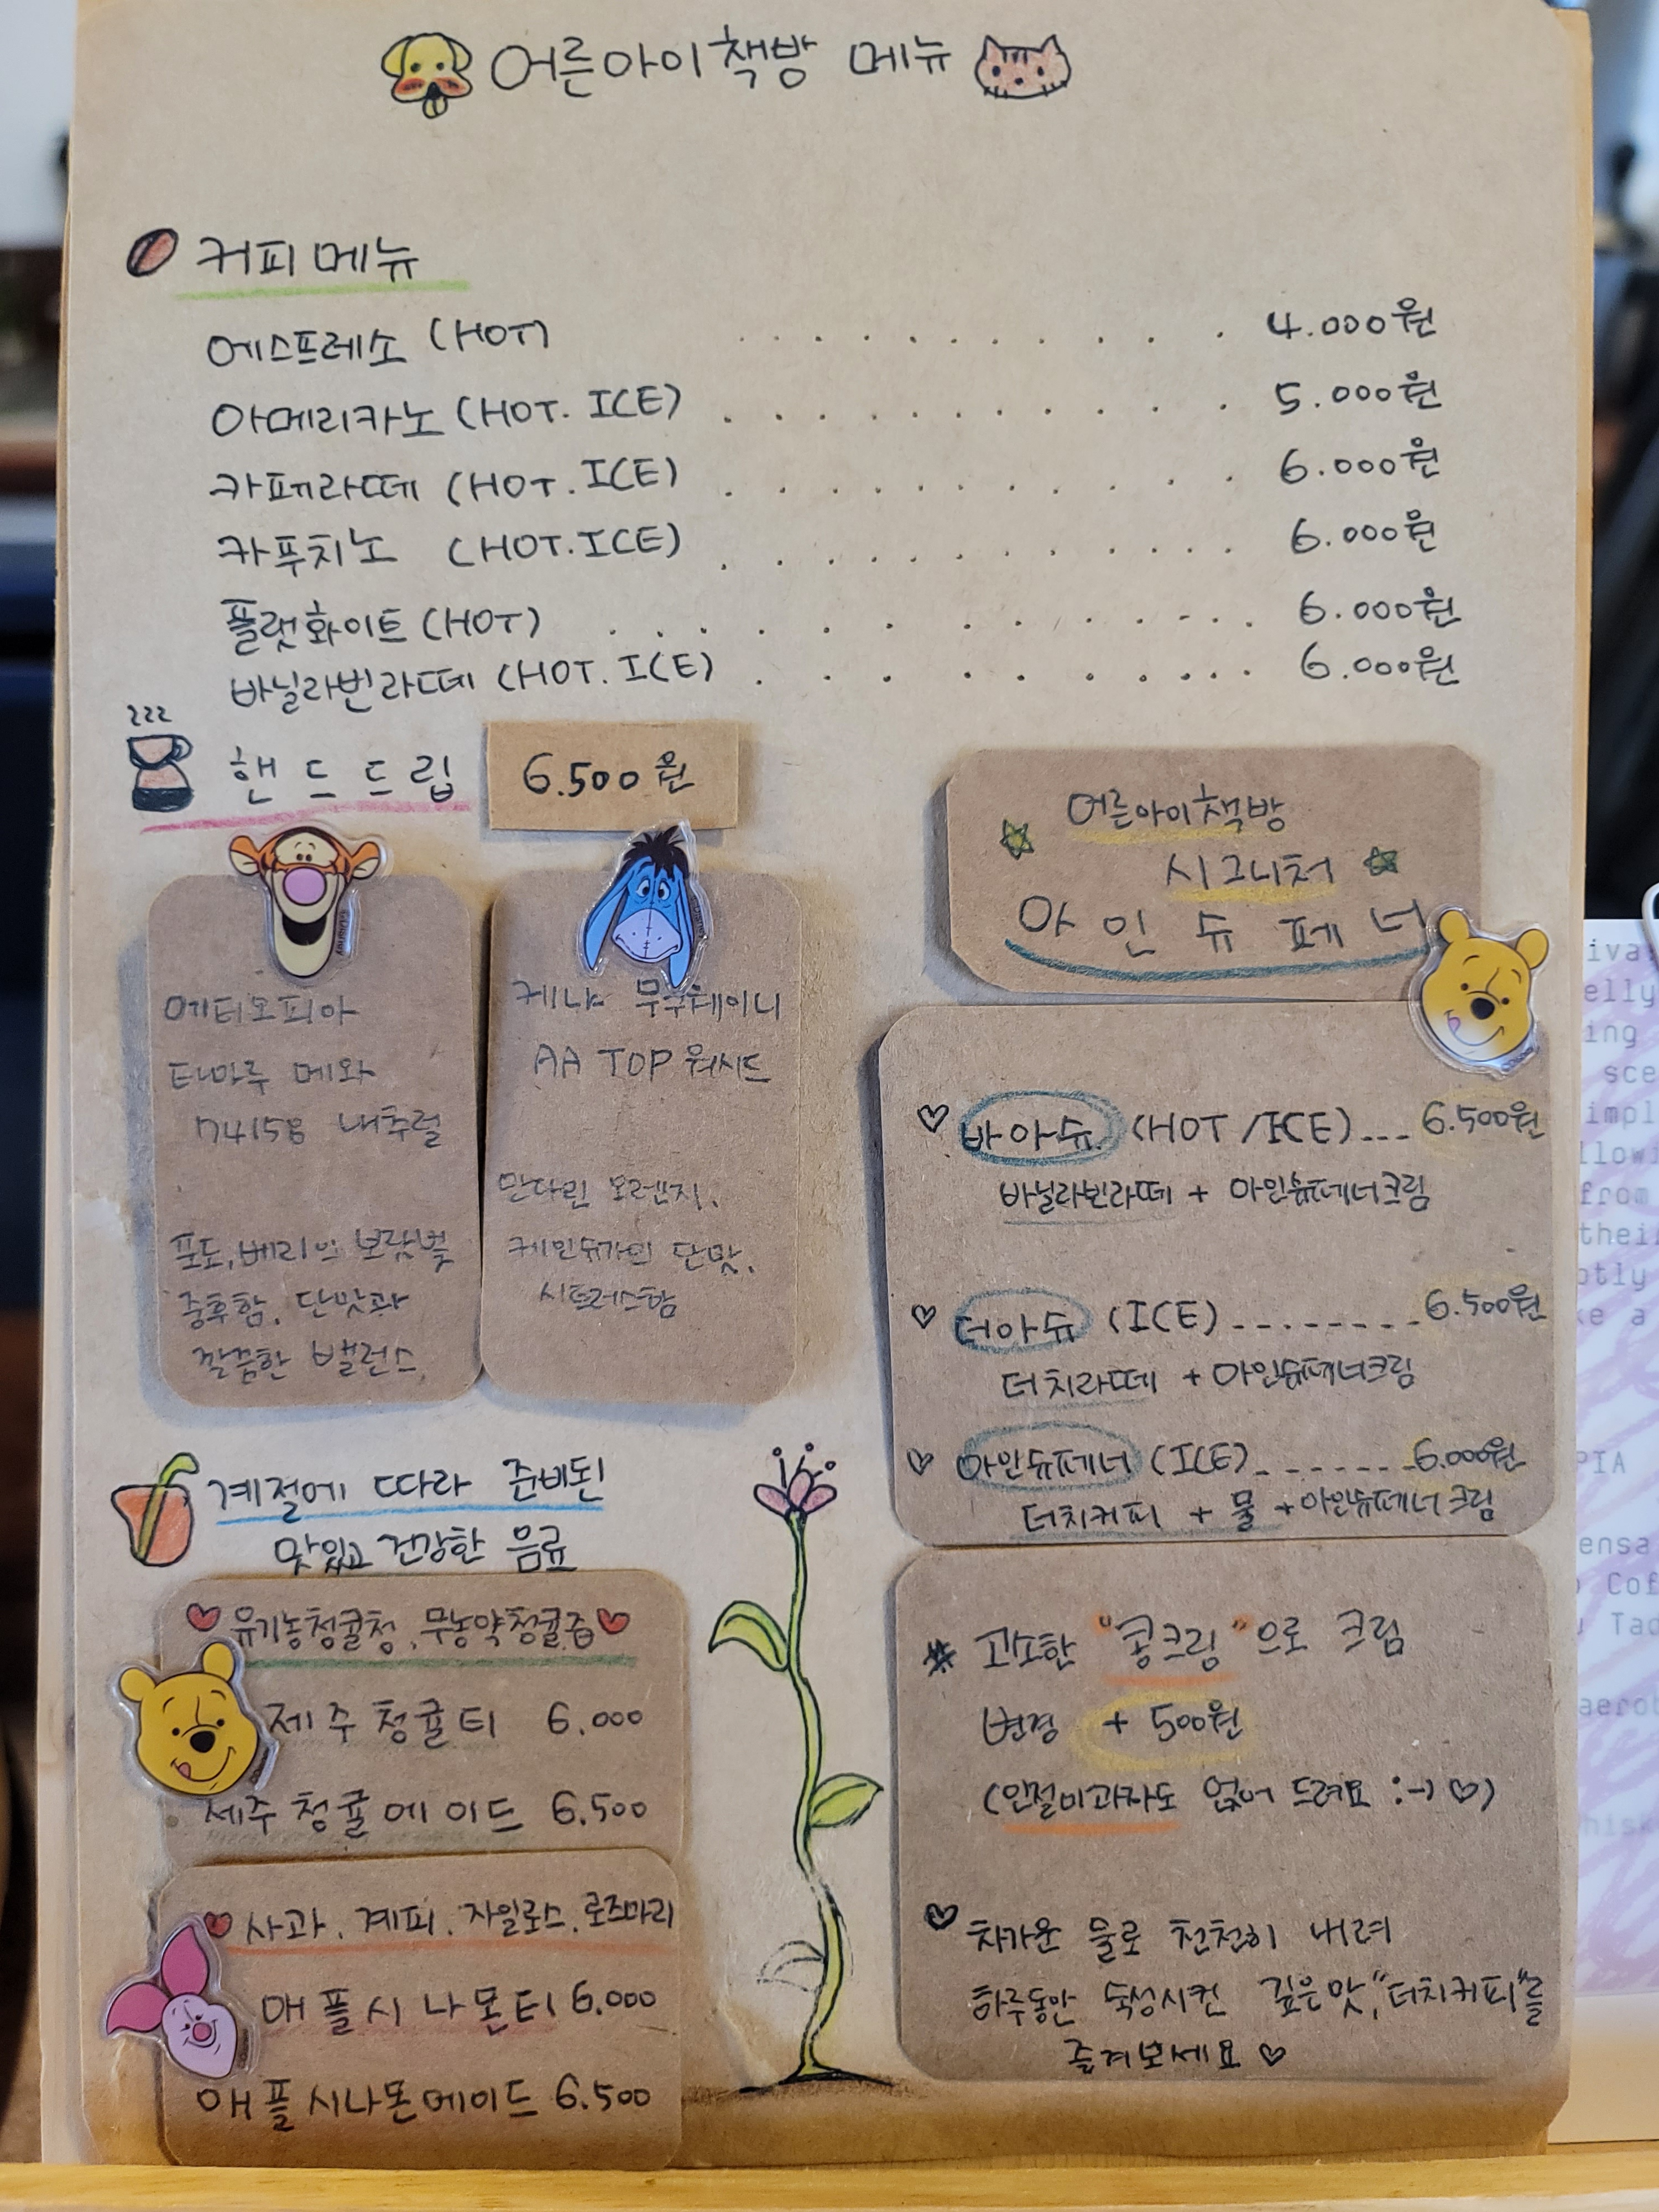 어른아이책방 메뉴
커피메뉴
에스프레소 (HOT) . . . . . . . . . . . 4.000원
아메리카노 (HOT. ICE) . . . . . . . . . . . 5.000원
카페라떼 (HOT. ICE) . . . . . . . . . . . 6.000원
카푸치노 (HOT.ICE) . . . . . . . . . . . 6.000원
플랫화이트 (HOT) . . . . . . . . . . . 6.000원
바닐라빈라떼 (HOT. ICE) . . . . . . . . . . . 6.000원
핸드드립 6.500원
에티오피아
타마루 메와
74158 내추럴
포도, 베리의 보랏빛
중후함, 단맛과
깔끔한 밸런스
케냐 무쿠웨이니
AA TOP 워시드
만다린 오렌지,
케인슈가의 단맛,
어른아이책방
시그니처
아인슈페너
바아슈 (HOT /ICE) --- 6.500원
바닐라빈라떼 + 아인슈페너크림
더아슈 (ICE) -------- 6.500원
더치라떼 + 아인슈페너크림
아인슈페너 (ICE) ------- 6.000원
더치커피 + 물 + 아인슈페너크림
* 고소한 "콩크림"으로 크림
변경 + 500원
(인절미과자도 얹어 드려요 :-) ♡)
♡ 차가운 물로 천천히 내려
하루동안 숙성시킨 깊은맛, "더치커피"를
즐겨보세요 ♡
계절에 따라 준비된
맛있고 건강한 음료
유기농청귤청, 무농약청귤즙
제주청귤티 6.000
제주청귤에이드 6.500
사과, 계피, 자일로스, 로즈마리
애플시나몬티 6.000
애플시나몬에이드 6.500
PIA